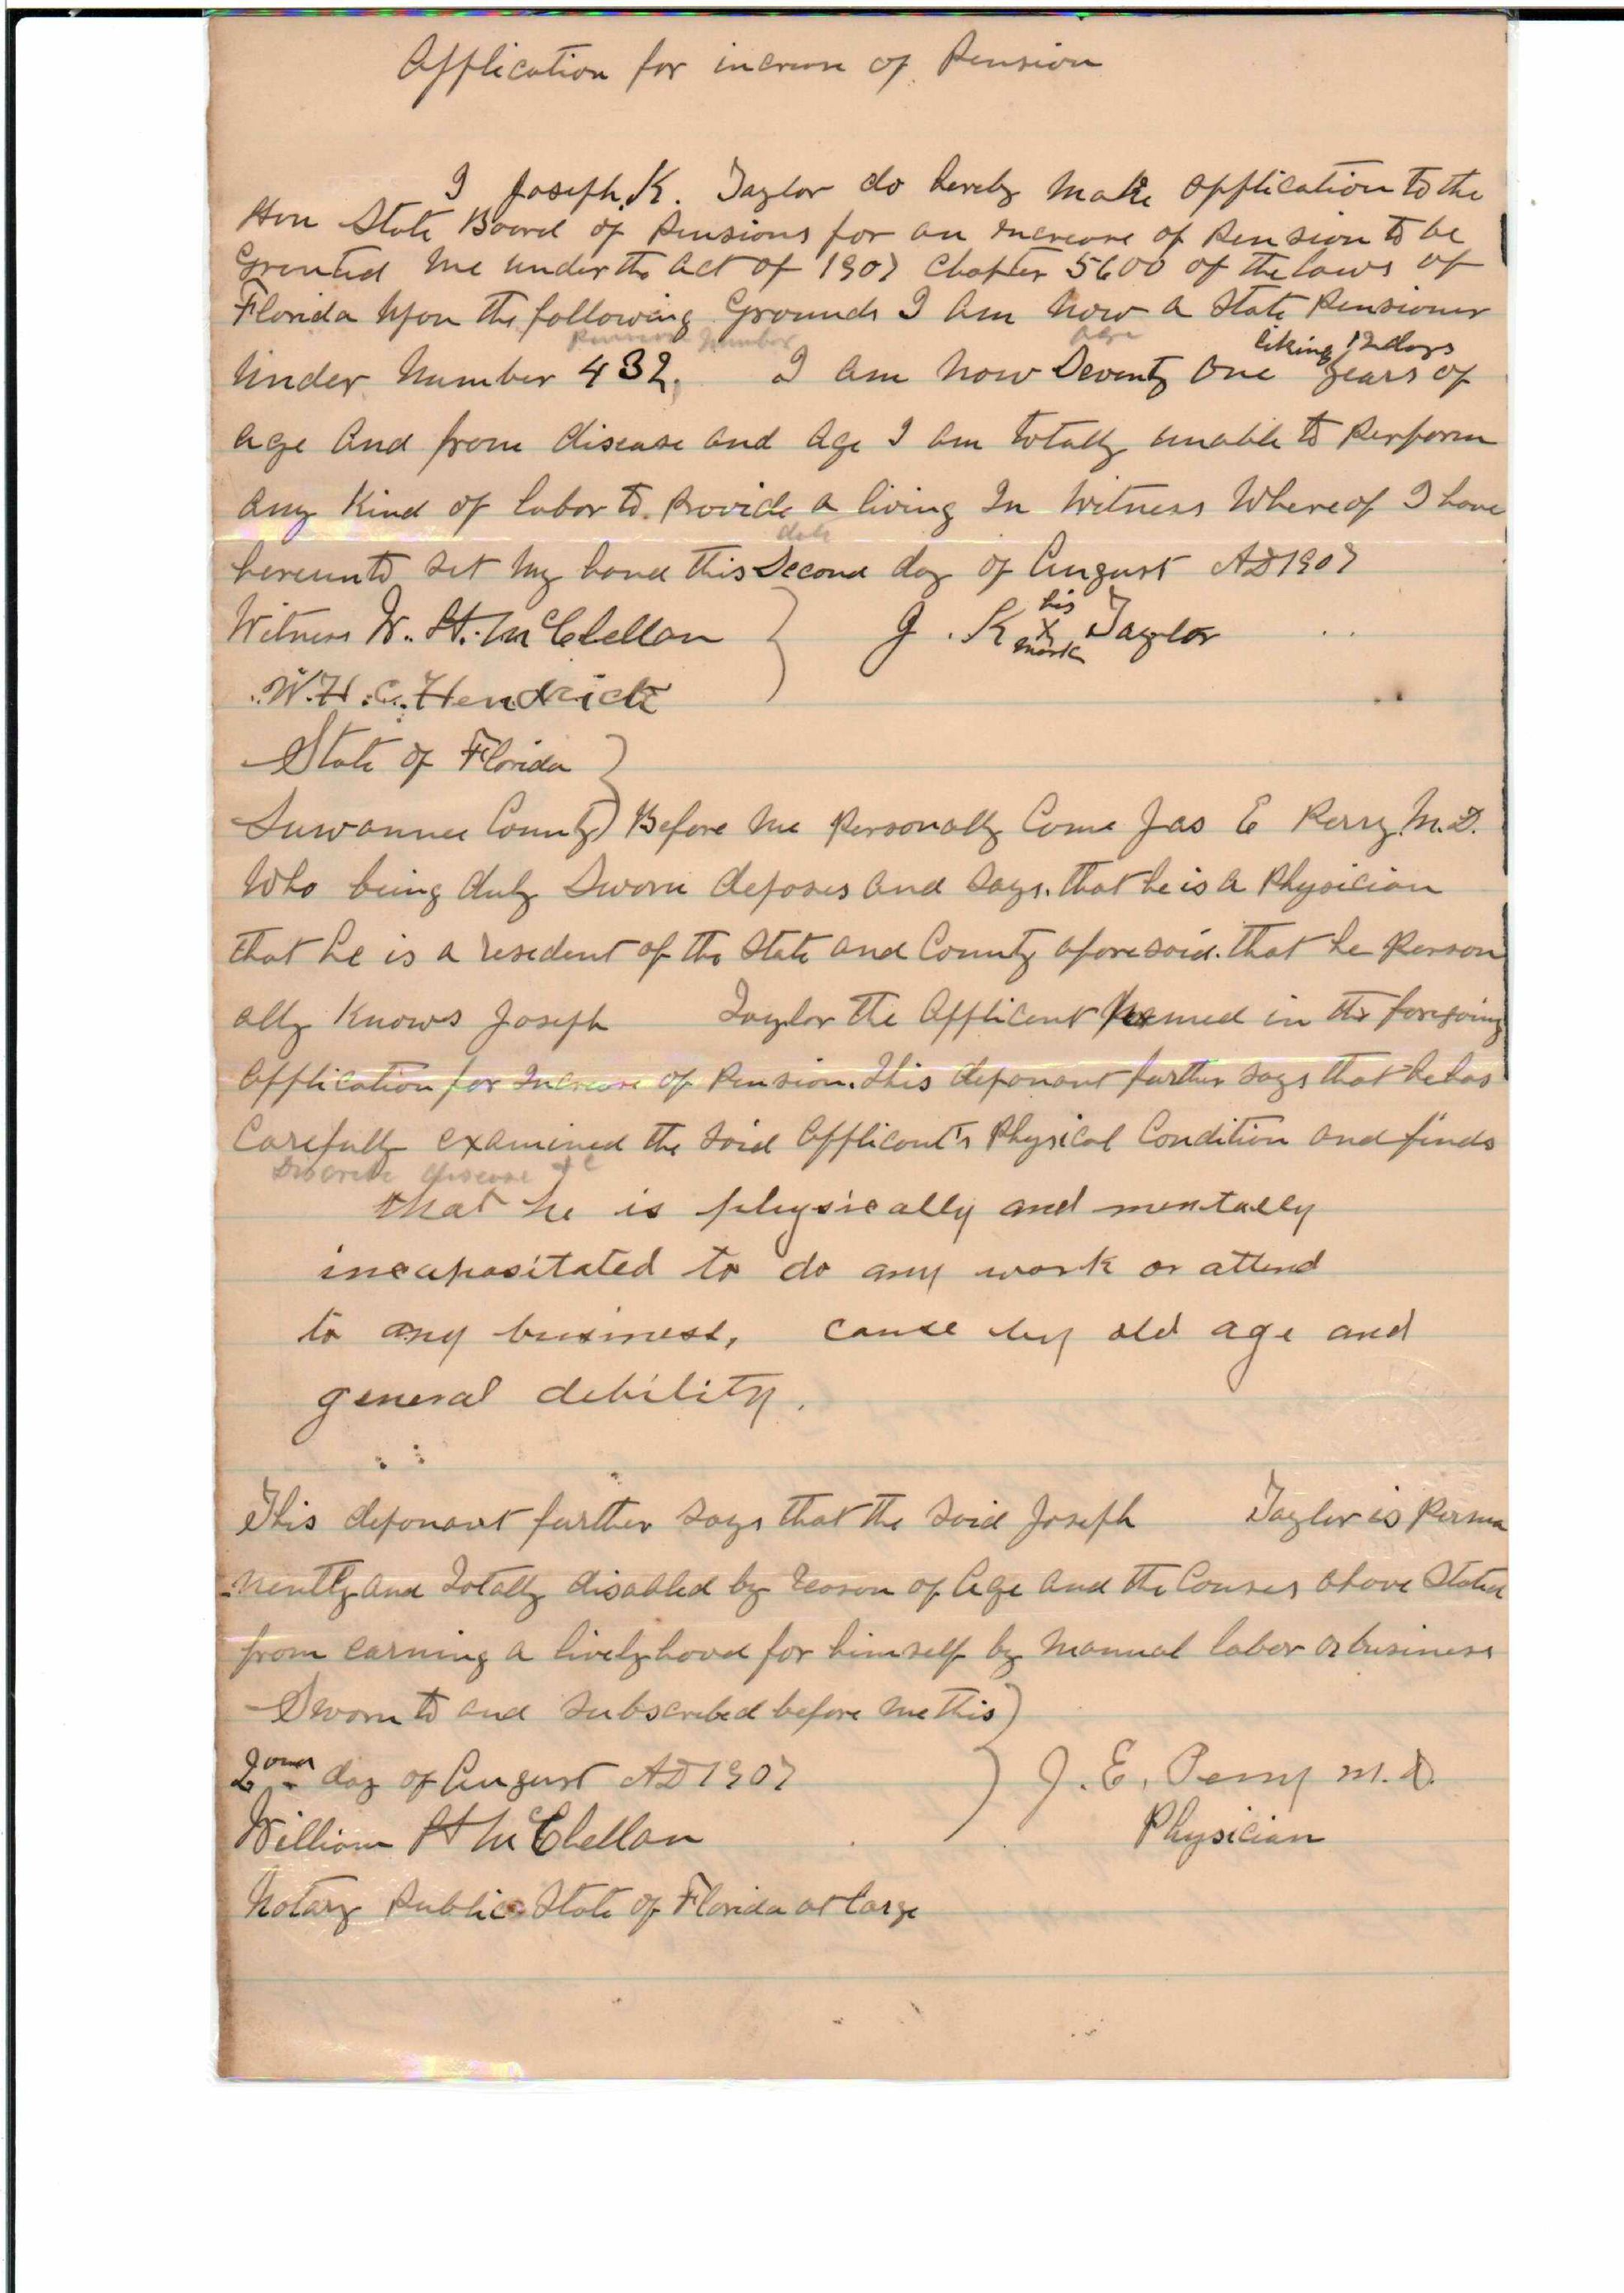 Application for increase of Pension
I Joseph K. Taylor do hereby make application to the
Hon State Board of Pensions for an increase of Pension to be
Granted me under the act of 1907 Chapter 5600 of the laws of
Florida upon the following Grounds I am now a State Pensioner
Pension Number age liking 12 days
Under Number 432, I am now Seventy One years of
age and from disease and age I am totally unable to Perform
any Kind of labor to Provide a living In Witness Whereof I have
date
hereunto set my hand this Second day of August AD 1907
Witness W. H. McClellan } J. K his x mark Taylor
W. H. C. Hendrick
State of Florida }
Suwannee County) Before me Personally Come Jas E Perry. M.D.
Who being duly Sworn deposes and says. that he is a Physician
that he is a resedent of the State and County aforesaid. that he Person
ally Knows Joseph Taylor the Applicant Named in the foregoing
Application for Increase of Pension. This deponant further says that he has
Carefully examined the said Applicant's Physical Condition and finds
Discribe disease &c
that he is physically and mentally
incapasitated to do any work or attend
to any business, cause by old age and
general debility.
This deponant further says that the said Joseph Taylor is Perma
-nently and Totally disabled by reason of Age and the Causes above Stated
from earning a livelyhood for himself by Manual labor or business
Sworn to and subscribed before me this )
2ond day of August AD 1907 ) J. E. Perry M.D.
William H McClellan Physician
Notary Public State of Florida at large